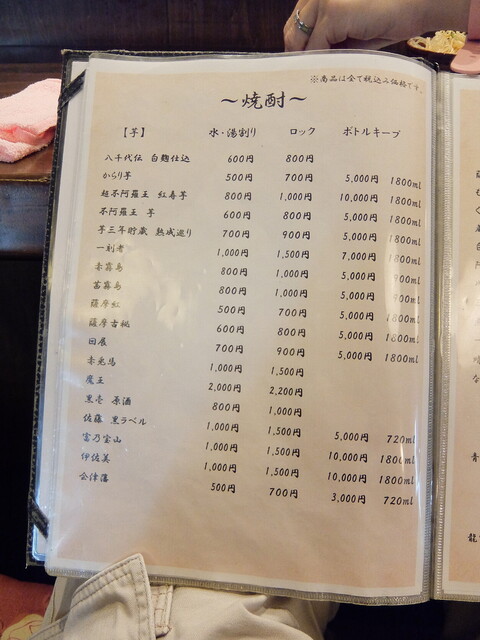 ※商品は全て税込み価格です。
～焼酎～
【芋】 水・湯割り ロック ボトルキープ
八千代伝 白麹仕込 600円 800円
からり芋 500円 700円 5,000円 1800ml
超不阿羅王 紅寿芋 800円 1,000円 10,000円 1800ml
不阿羅王 芋 600円 800円 5,000円 1800ml
芋三年貯蔵 熟成巡り 700円 900円 5,000円 1800ml
一刻者 1,000円 1,500円 7,000円 1800ml
赤霧島 800円 1,000円 5,000円 900ml
茜霧島 800円 1,000円 5,000円 900ml
薩摩紅 500円 700円 5,000円 1800ml
薩摩古秘 600円 800円 5,000円 1800ml
700円 900円 5,000円 1800ml
赤兎馬 1,000円 1,500円
魔王 2,000円 2,200円
黒壱 原酒 800円 1,000円
佐藤 黒ラベル 1,000円 1,500円 5,000円 720ml
富乃宝山 1,000円 1,500円 10,000円 1800ml
伊佐美 1,000円 1,500円 10,000円 1800ml
会津藩 500円 700円 3,000円 720ml
な
青
龍